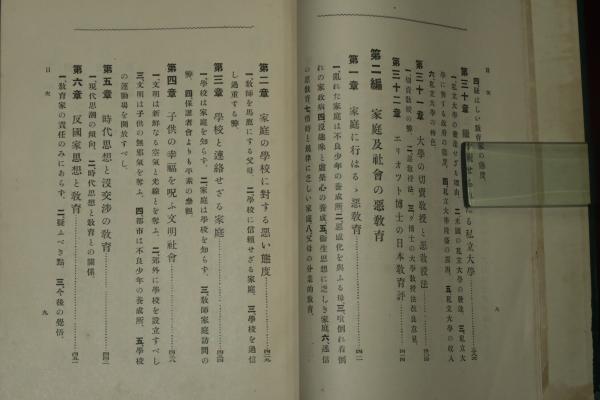 目次
四、疑はしい教育家の態度。
第三十章
たる私立大學
一、私立大學の
二、米國の私立大學の發達。三、私立大
學に對する政府の態度。四、私立大學
五、私立大學の收入
六、私立大學の特色。
第三十一章 大學の切賣敎授と惡敎授法
一、切賣敎授の弊。二、惡敎授法。三、
博士の大學敎授法改良意見。
第三十二章 エリオット博士の日本敎育評
第二編 家庭及社會の惡敎育
第一章 家庭に行はるゝ惡敎育
一、亂れた家庭は不良少年の養成所。二、惡感化を與ふる母。三、喰倒れ着倒
れの家政病。四、沒趣味と虛榮心の養成。五、衞生思想に乏しき家庭。六、迷信
の惡敎育。七、恪時と規律に乏しい家庭。八、父母の分業的敎育。
九
第二章 家庭の學校に對する惡い態度
一、敎師を馬鹿にする父母。二、學校に信賴せざる家庭。三、學校を過信
し過重する弊。
第三章 學校と連絡せざる家庭
一、學校は家庭を知らず。二、家庭は學校を知らず。三、敎師家庭訪問の
弊。四、保護者會よりも平素の參觀。
第四章 子供の幸福を呪ふ文明社會
一、文明は新鮮なる空氣と光線とを奪ふ。二、郊外に學校を設立すべし
三、文明は子供の無邪氣を奪ふ。四、都市は不良少年の養成所。五、學校
の運動場を開放すべし。
第五章 時代思想と沒交渉の敎育
一、現代思潮の傾向。二、時代思想と敎育との關係。
第六章 反國家思想と敎育
一、敎育家の責任のみにあらず。二、疑ふべき點。三、今後の覺悟。
目次
九